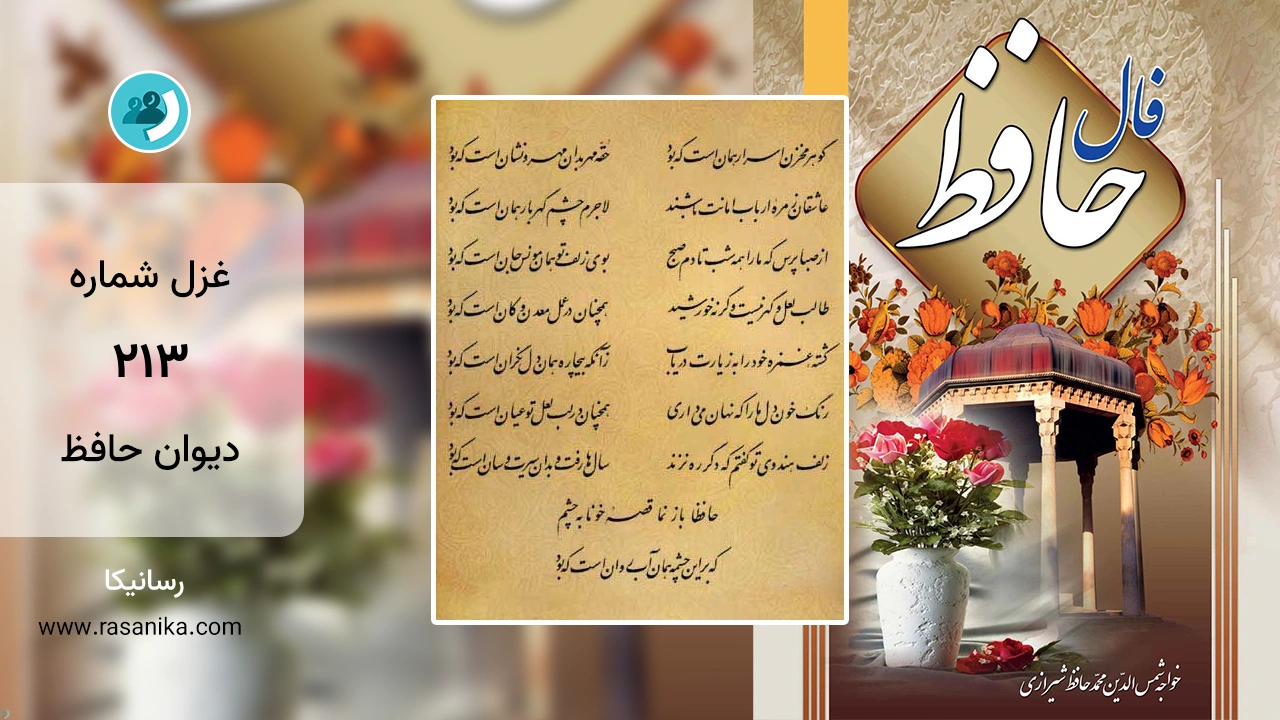 فال
حافظ
گوهر مخزن اسرار همان است که بود
حقه مهر بدان مهر و نشان است که بود
عاشقان زمره ارباب امانت باشند
لاجرم چشم گهربار همان است که بود
از صبا پرس که ما را همه شب تا دم صبح
بوی زلف تو همان مونس جان است که بود
طالب لعل و گهر نیست وگرنه خورشید
همچنان در عمل معدن و کان است که بود
کشته غمزه خود را به زیارت دریاب
زانکه بیچاره همان دل نگران است که بود
رنگ خون دل ما را که نهان می داری
همچنان در لب لعل تو عیان است که بود
زلف هندوی تو گفتم که دگر ره نزند
سال ها رفت و بدان سیرت و سان است که بود
حافظا باز نما قصه خونابه چشم
که بر این چشمه همان آب روان است که بود
خواجه شمس الدّین محمّد حافظ شیرازی
غزل شماره
۲۱۳
دیوان حافظ
رسانیکا
www.rasanika.com